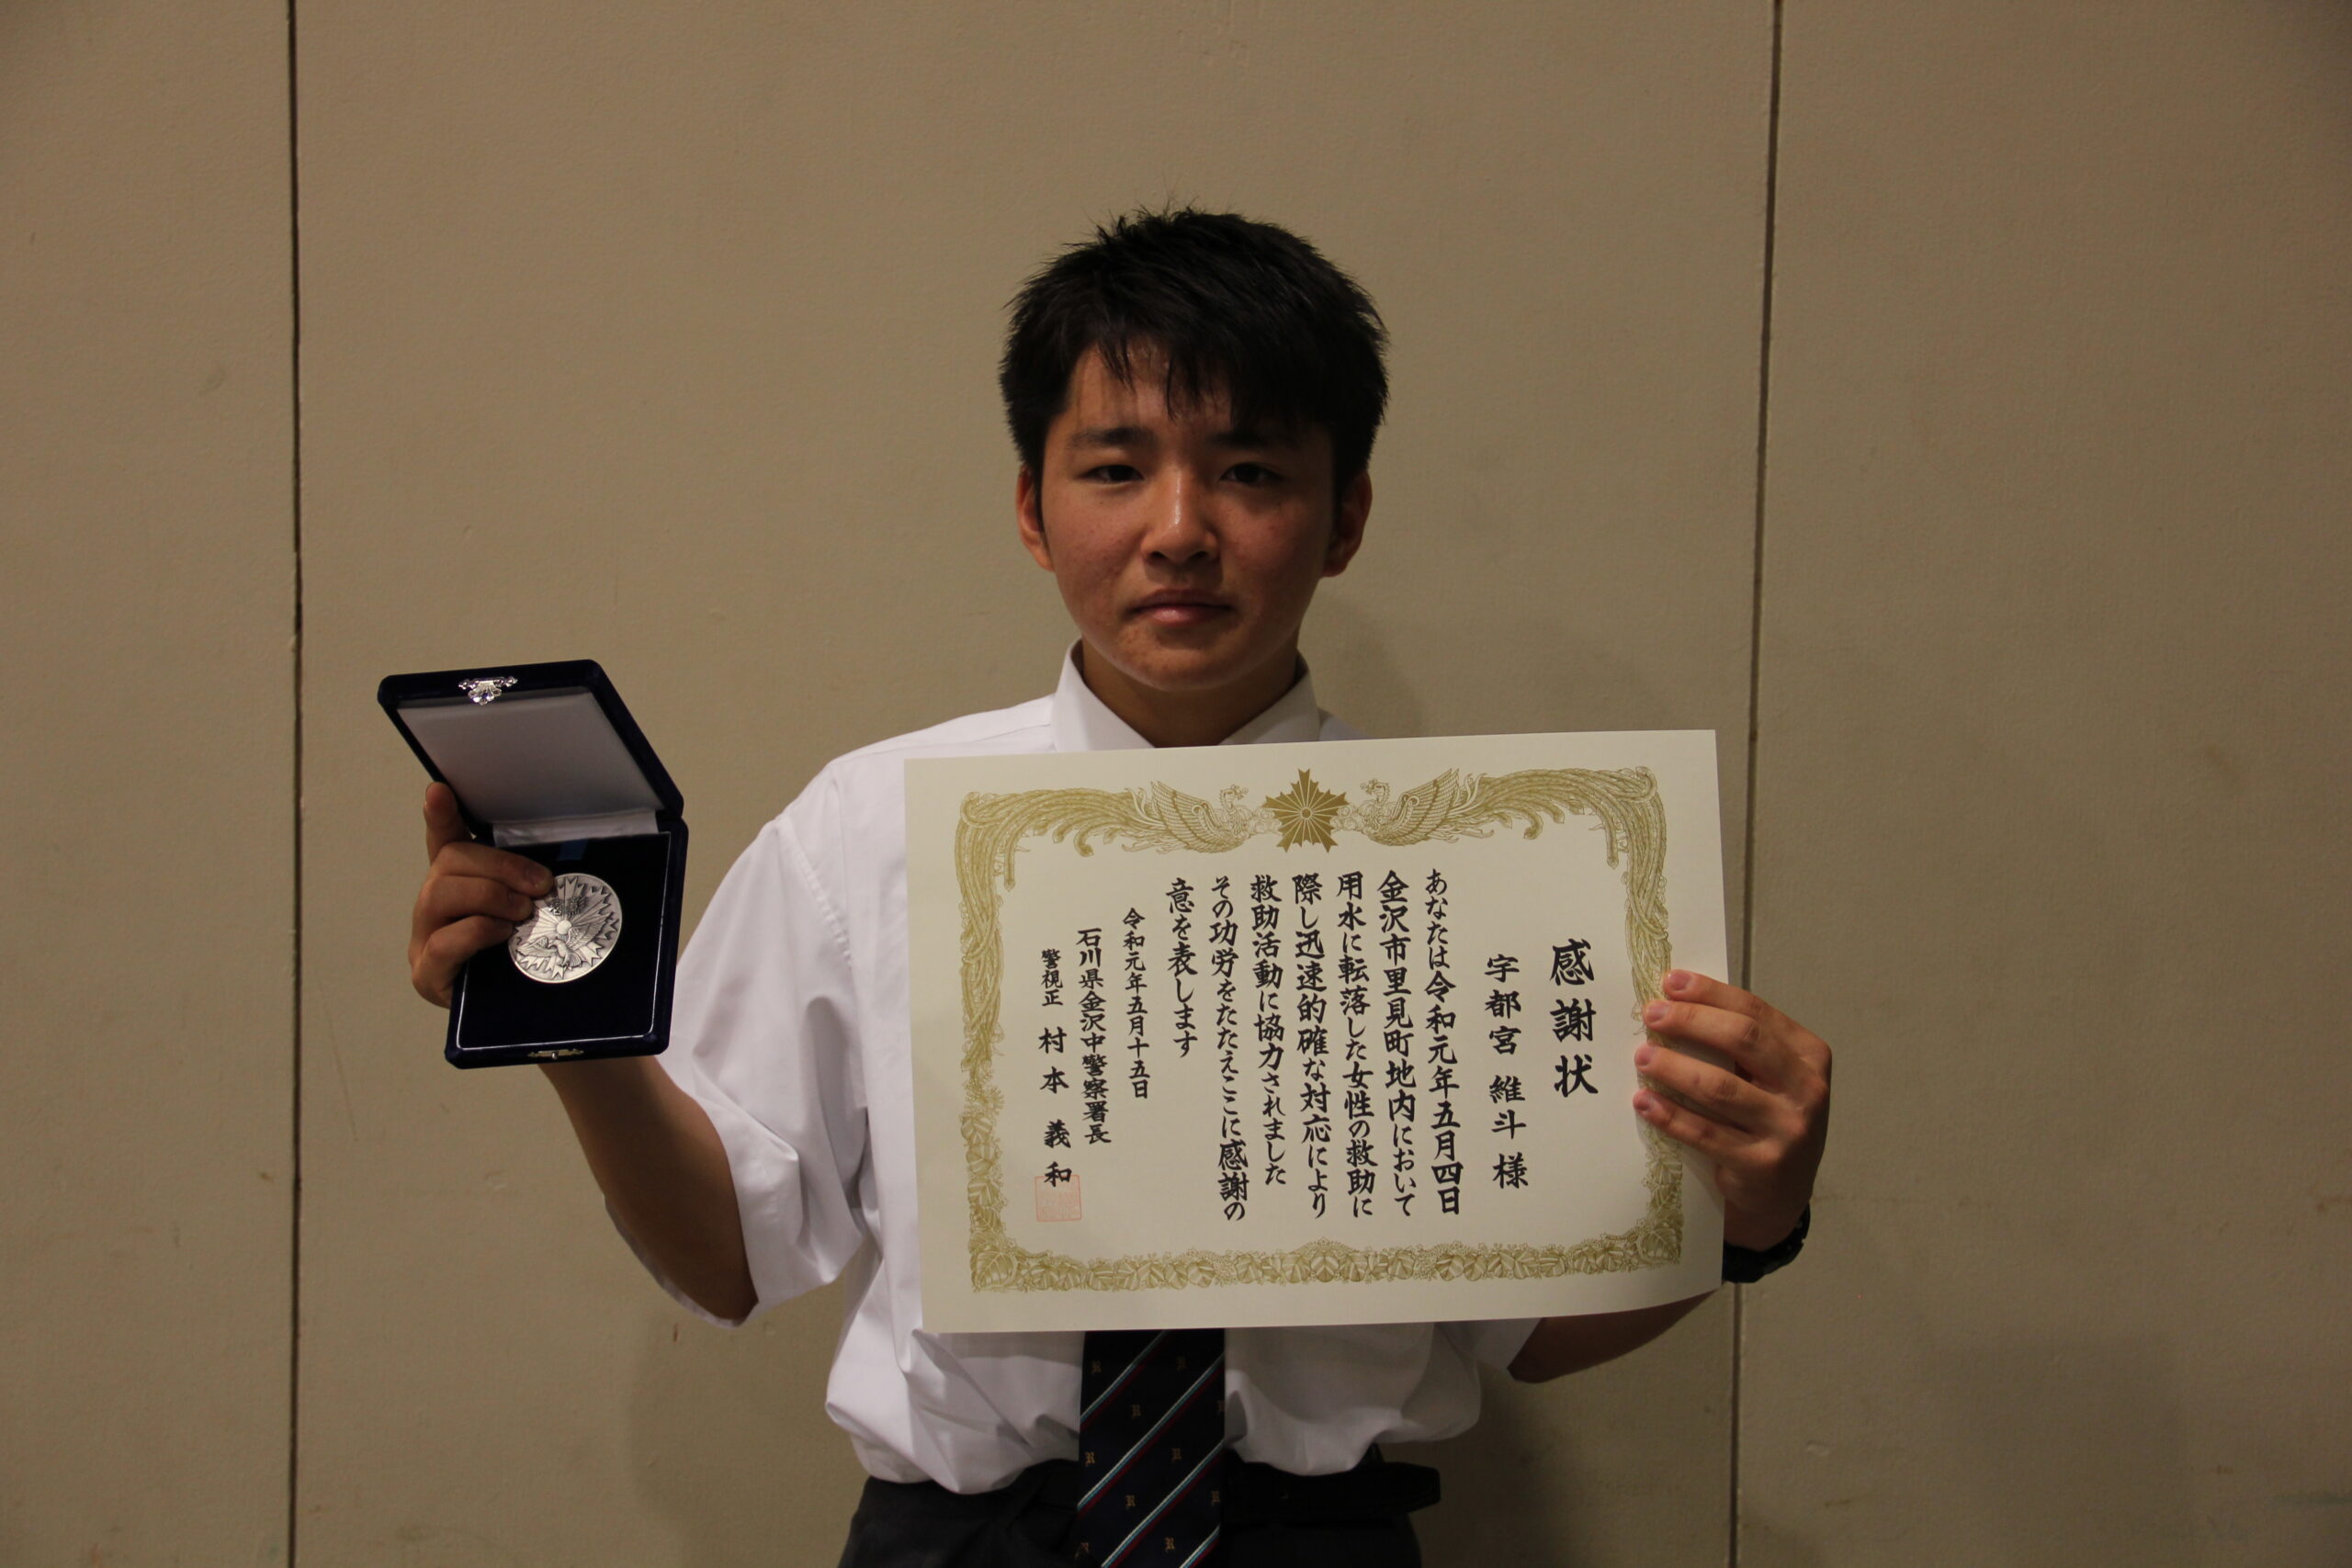 感謝状
宇都宮 維斗 様
あなたは令和元年五月四日
金沢市里見町地内において
用水に転落した女性の救助に
際し迅速的確な対応により
救助活動に協力されました
その功労をたたえここに感謝の
意を表します
令和元年五月十五日
石川県金沢中警察署長
警視正 村本義和